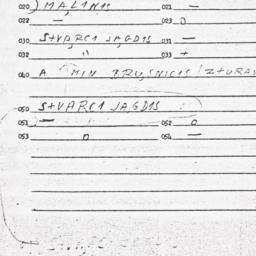 020 MALINIS 021 —
022 — 023 0
030 S+VARC1 JAGDIS 031 —
032 0 033 +
040 A MIN BRUSNICIS
050 S+VARC1 JAGDIS
051 — 052 0
053 0 054 —